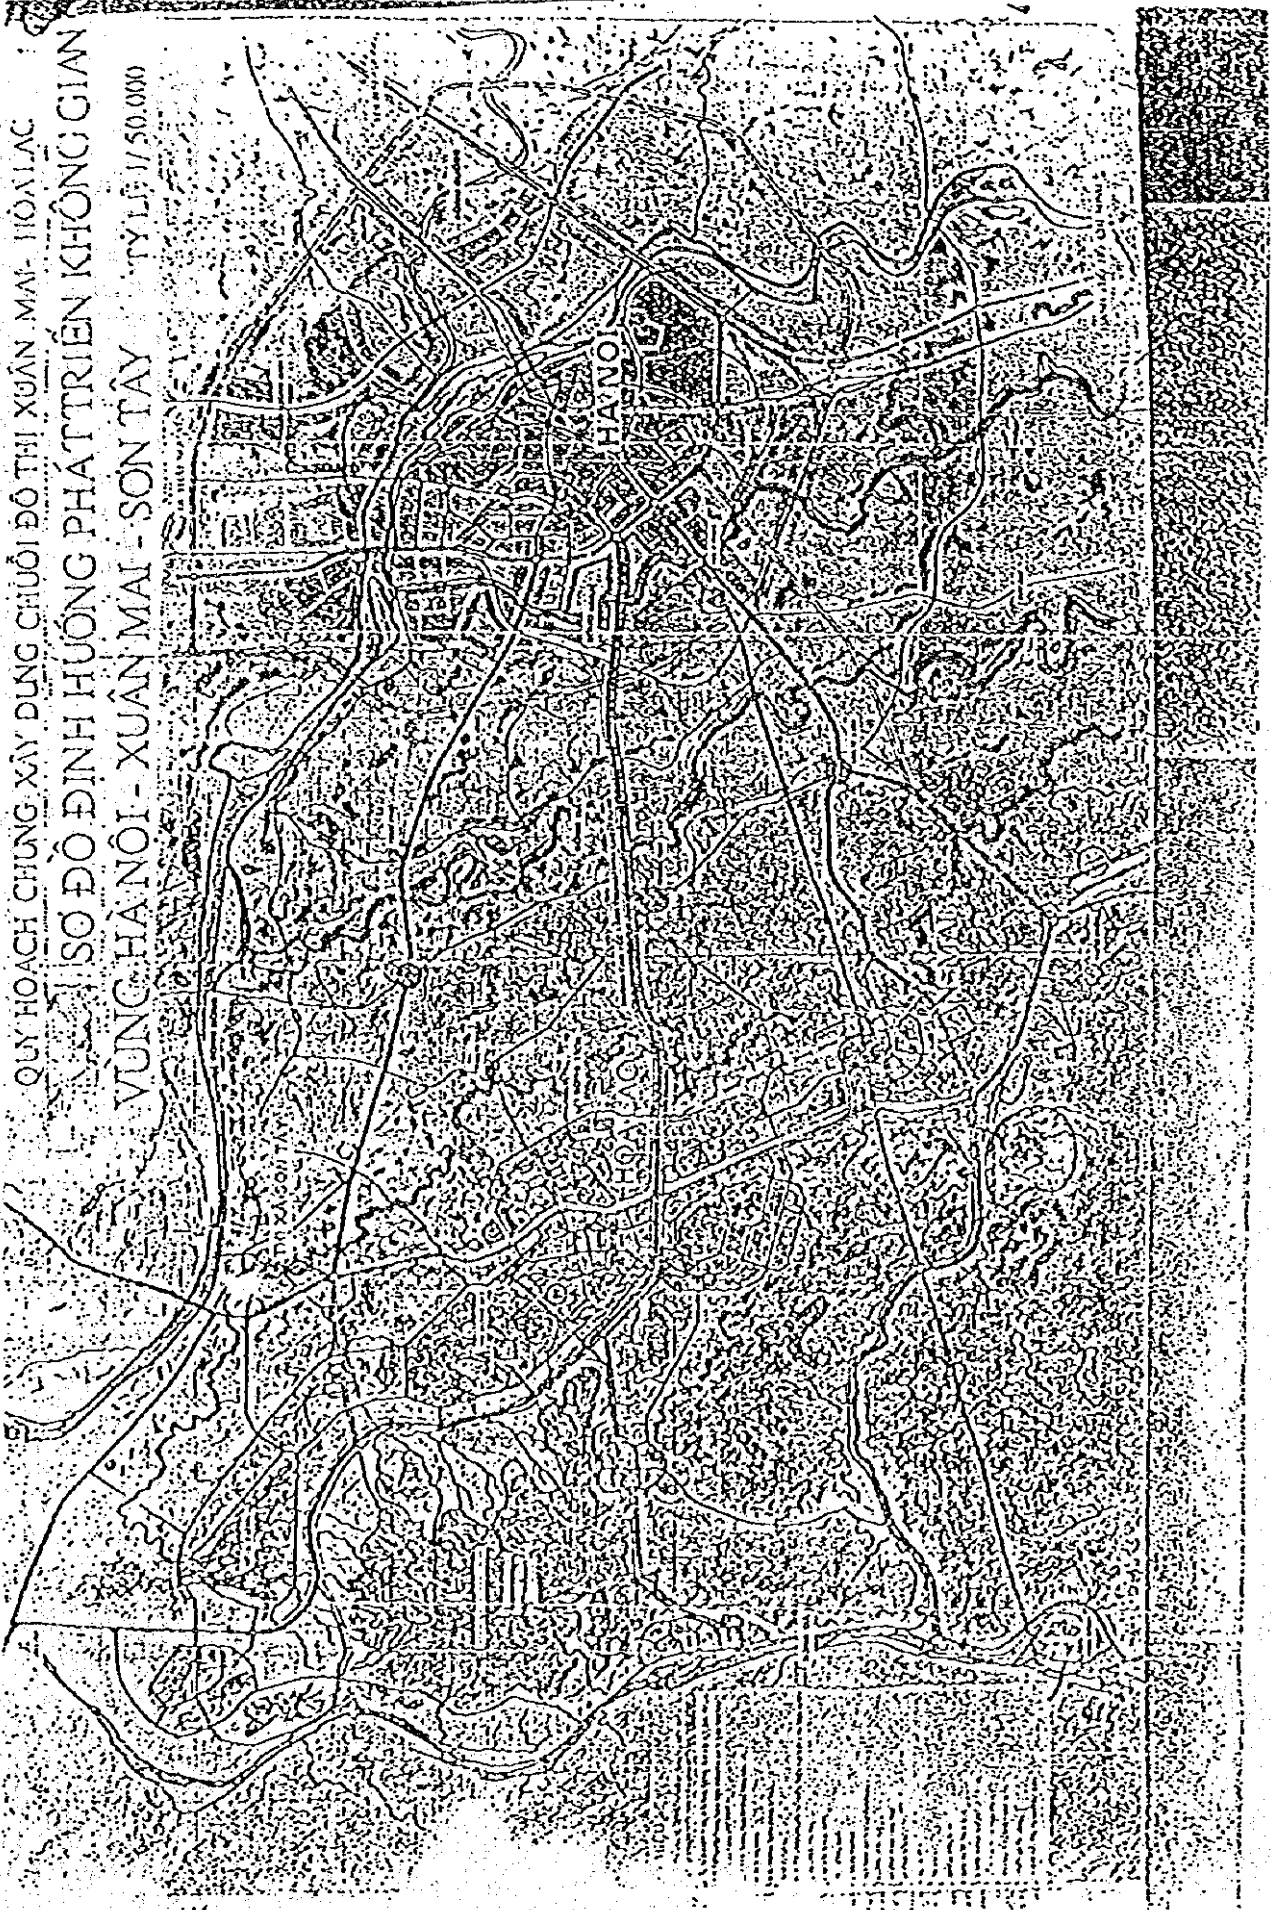 QUY HOẠCH CHUNG XÂY DỰNG CHUỖI ĐÔ THỊ XUÂN MAI - HOÀ LẠC
SƠ ĐỒ ĐỊNH HƯỚNG PHÁT TRIỂN KHÔNG GIAN
VÙNG HÀ NỘI - XUÂN MAI - SƠN TÂY TỶ LỆ 1/50.000
HÀ NỘI
HOÀ LẠC